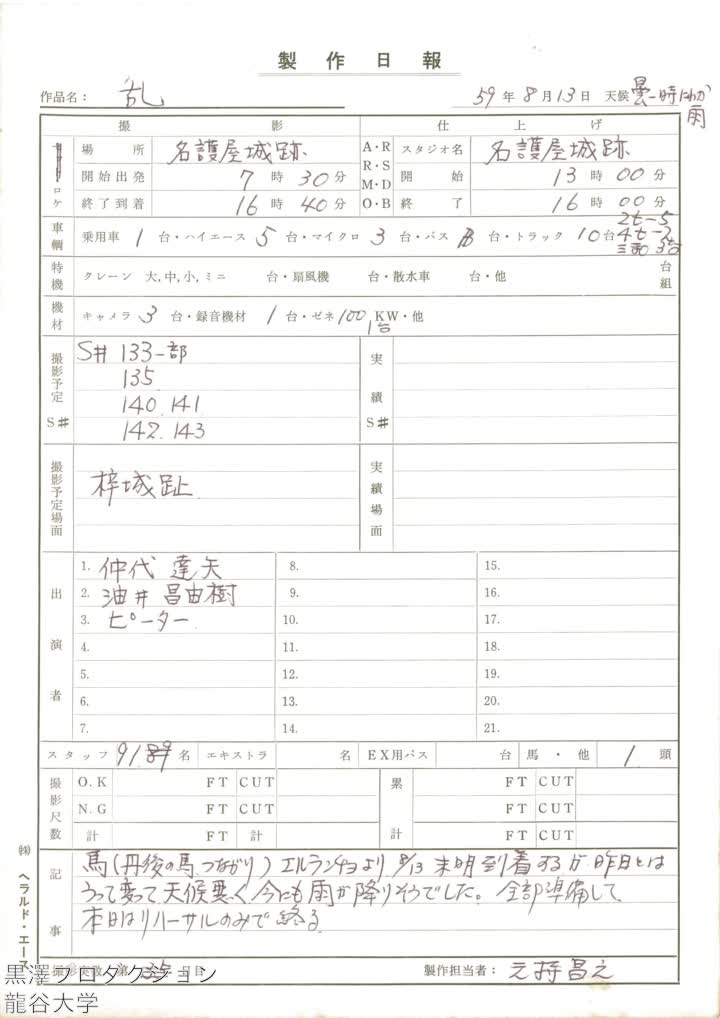 製作日報
作品名： 乱 59年8月13日 天候 曇一時にわか雨
撮影 仕上げ
ロケ 場所 名護屋城跡 A・R スタジオ名 名護屋城跡
開始出発 7時30分 R・S M・D 開始 13時00分
終了到着 16時40分 O・B 終了 16時00分
車輌 乗用車 1 台・ハイエース 5 台・マイクロ 3 台・バス 台・トラック 10台 2t-5 4t-2 3台
特機 クレーン 大,中,小,ミニ 台・扇風機 台・散水車 台・他 台 組
機材 キャメラ 3 台・録音機材 1 台・ゼネ 100 KW・他 1台
撮影予定 S# S# 133一部 実績 S#
135
140. 141
142. 143
撮影予定場面 梓城趾 実績場面
出演者 1. 仲代達矢 8. 15.
2. 油井昌由樹 9. 16.
3. ピーター 10. 17.
4. 11. 18.
5. 12. 19.
6. 13. 20.
7. 14. 21.
スタッフ 91 名 エキストラ 名 EX用バス 台 馬・他 1 頭
撮影尺数 O.K FT CUT 累 FT CUT
N.G FT CUT FT CUT
計 FT 計 計 FT CUT
記事 馬(丹後の馬、つながり)エルランチョより 8/13 未明到着するが昨日とは
うって変って天候悪く今にも雨が降りそうでした。全部準備して、
本日はリハーサルのみで終る
撮影実数 第 35 日目 製作担当者： 元持昌之
㈱ヘラルド・エース
黒澤プロダクション
龍谷大学